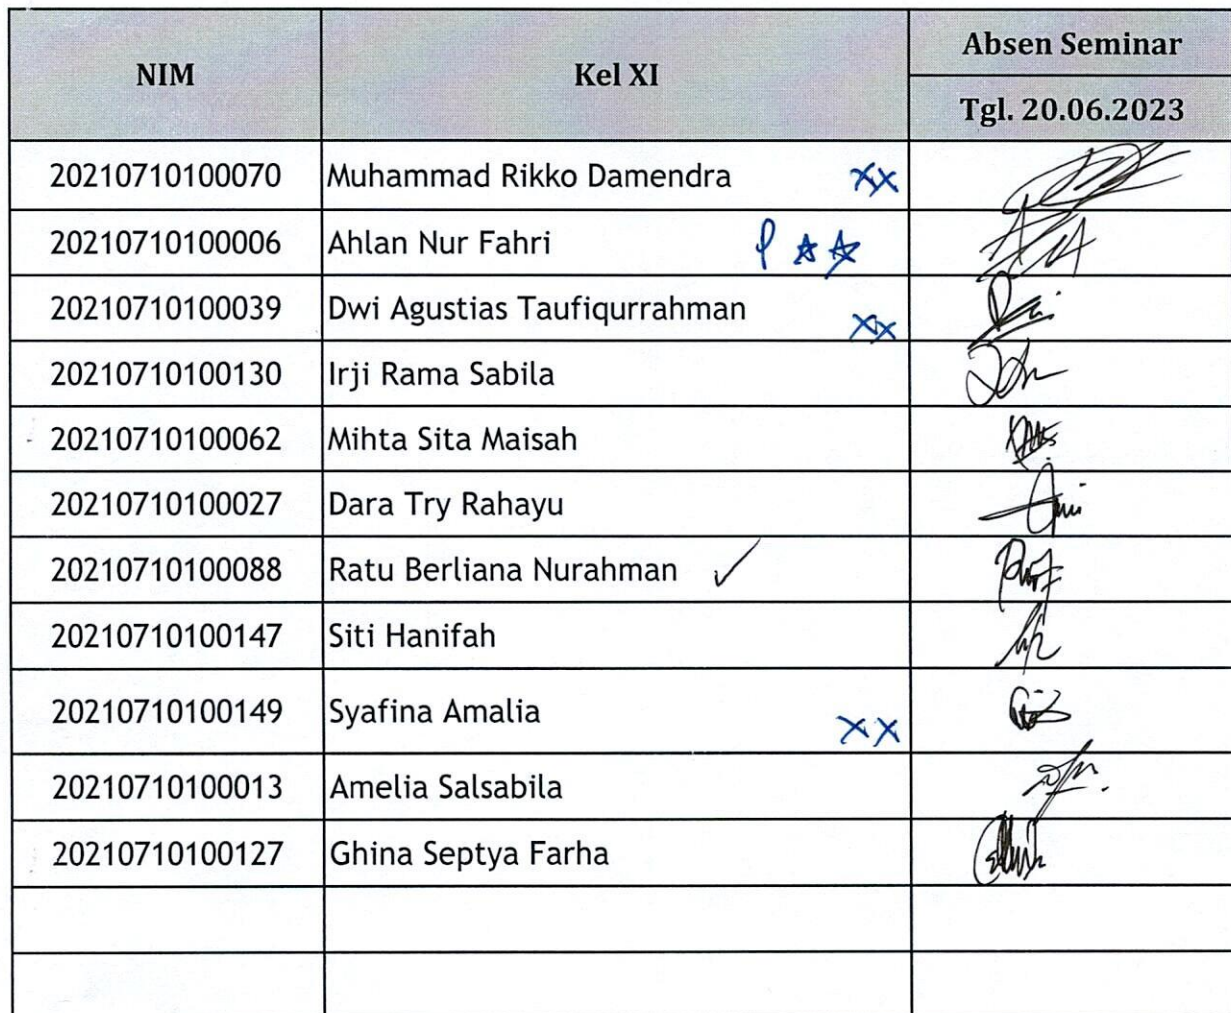 NIM Kel XI Absen Seminar
Tgl. 20.06.2023
20210710100070 Muhammad Rikko Damendra xx
20210710100006 Ahlan Nur Fahri P ☆☆
20210710100039 Dwi Agustias Taufiqurrahman xx
20210710100130 Irji Rama Sabila
20210710100062 Mihta Sita Maisah
20210710100027 Dara Try Rahayu
20210710100088 Ratu Berliana Nurahman ✓
20210710100147 Siti Hanifah
20210710100149 Syafina Amalia xx
20210710100013 Amelia Salsabila
20210710100127 Ghina Septya Farha